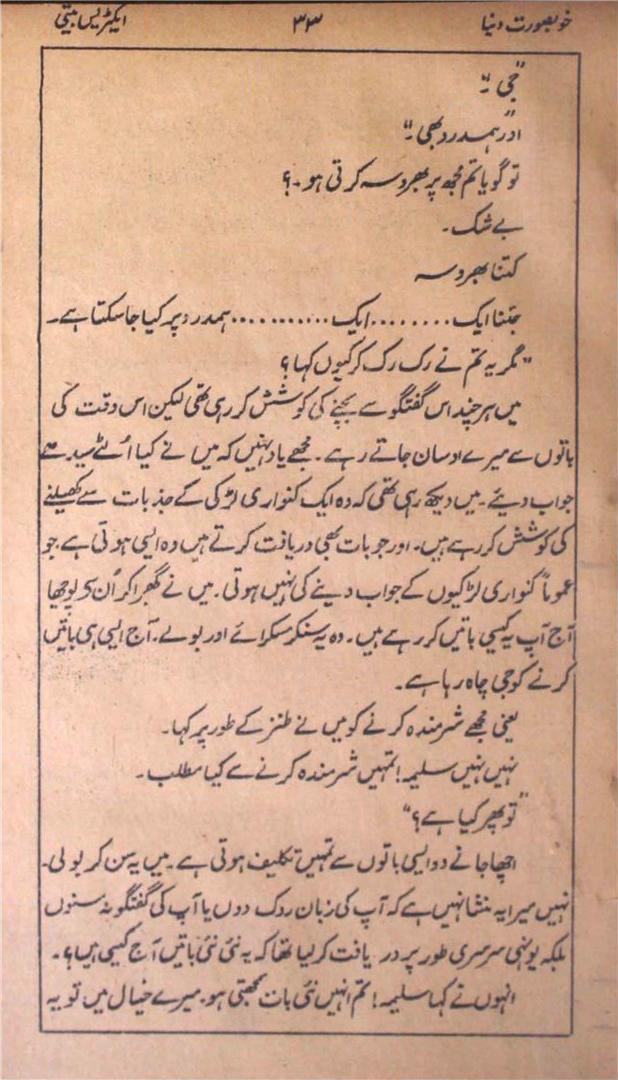 خوبصورت دنیا ۳۳ ایکٹریس بیتی
"جی ۔"
"اور ہمدرد بھی ۔"
تو گویا تم مجھ پر بھروسہ کرتی ہو ۔ ؟
بے شک ۔
کتنا بھروسہ
جتنا ایک ........ ایک ........... ہمدرد پر کیا جا سکتا ہے ۔
"مگر یہ تم نے رک رک کر کیوں کہا ؟
میں ہر چند اس گفتگو سے بچنے کی کوشش کر رہی تھی لیکن اس وقت کی
باتوں سے میرے اوسان جاتے رہے ۔ مجھے یاد نہیں کہ میں نے کیا اُلٹے سیدھے
جواب دیئے ۔ میں دیکھ رہی تھی کہ وہ ایک کنواری لڑکی کے جذبات سے کھیلنے
کی کوشش کر رہے ہیں ۔ اور جو بات بھی دریافت کرتے ہیں وہ ایسی ہوتی ہے جو
عموماً کنواری لڑکیوں کے جواب دینے کی نہیں ہوتی ۔ میں نے گھبرا کر اُن سے پوچھا
آج آپ یہ کیسی باتیں کر رہے ہیں ۔ وہ یہ سنکر مسکرائے اور بولے ۔ آج ایسی ہی باتیں
کرنے کو جی چاہ رہا ہے ۔
یعنی مجھے شرمندہ کرنے کو میں نے طنز کے طور پر کہا ۔
نہیں نہیں سلیمہ ! تمہیں شرمندہ کرنے سے کیا مطلب ۔
"تو پھر کیا ہے ؟"
اچھا جانے دو ایسی باتوں سے تمہیں تکلیف ہوتی ہے ۔ میں یہ سن کر بولی ۔
نہیں میرا یہ منشا نہیں ہے کہ آپ کی زبان روک دوں یا آپ کی گفتگو نہ سنوں
بلکہ یونہی سرسری طور پر دریافت کر لیا تھا کہ یہ نئی نئی باتیں آج کیسی ہیں ؟ ۔
انہوں نے کہا سلیمہ ! تم انہیں نئی بات سمجھتی ہو ۔ میرے خیال میں تو یہ